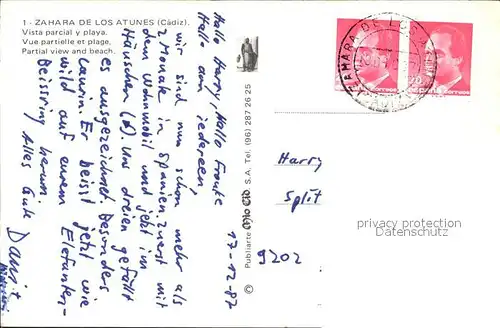 1 - ZAHARA DE LOS ATUNES (Cádiz).
Vista parcial y playa.
Vue partielle et plage.
Partial view and beach.
17-12-87
Hallo Harry, Hallo Frauke
Hallo an jedereen,
wir sind nun schon mehr als
2 Monate in Spanien, zuerst mit
dem Wohnmobil und jetzt im
Häuschen (6). Uns dreien gefällt
es ausgezeichnet. Besonders
Laurin. Er beisst jetzt wie
wild auf eurem Elefanten-
Beissring herum.
Alles Gute
Publiarte Mio Cid S.A. Tel. (96) 287 26 25
ZAHARA DE LOS
España
correos
Harry
Split
9202
privacy protection
Datenschutz